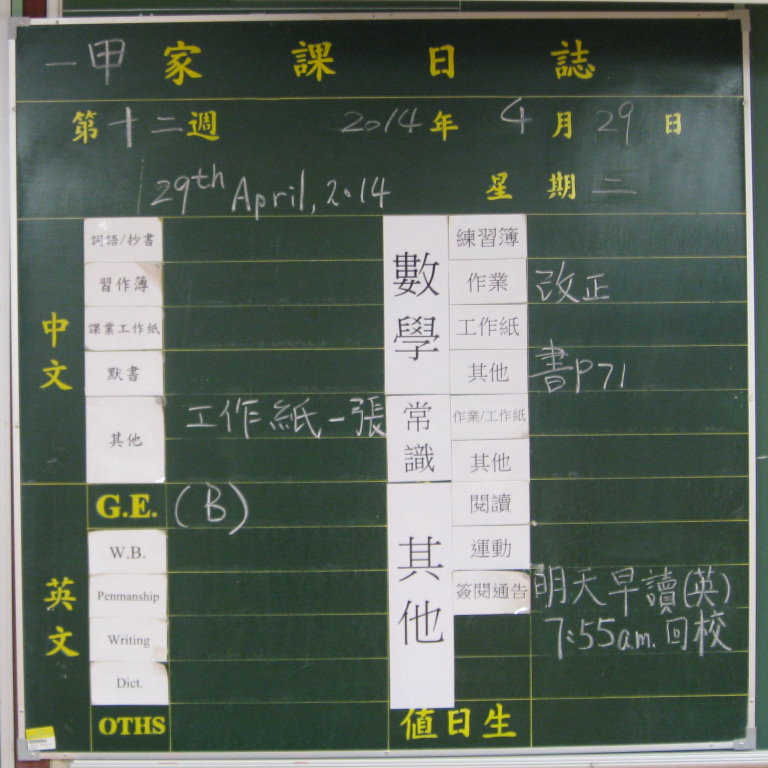 一甲家課日誌
第十二週 2014年 4月29日
29th April, 2014 星期二
中文
詞語/抄書
習作簿
課業工作紙
默書
其他 工作紙一張
英文
G.E. (B)
W.B.
Penmanship
Writing
Dict.
OTHS
數學
練習簿
作業 改正
工作紙
其他 書P71
常識
作業/工作紙
其他
其他
閱讀
運動
簽閱通告 明天早讀(英)
7:55am.回校
值日生